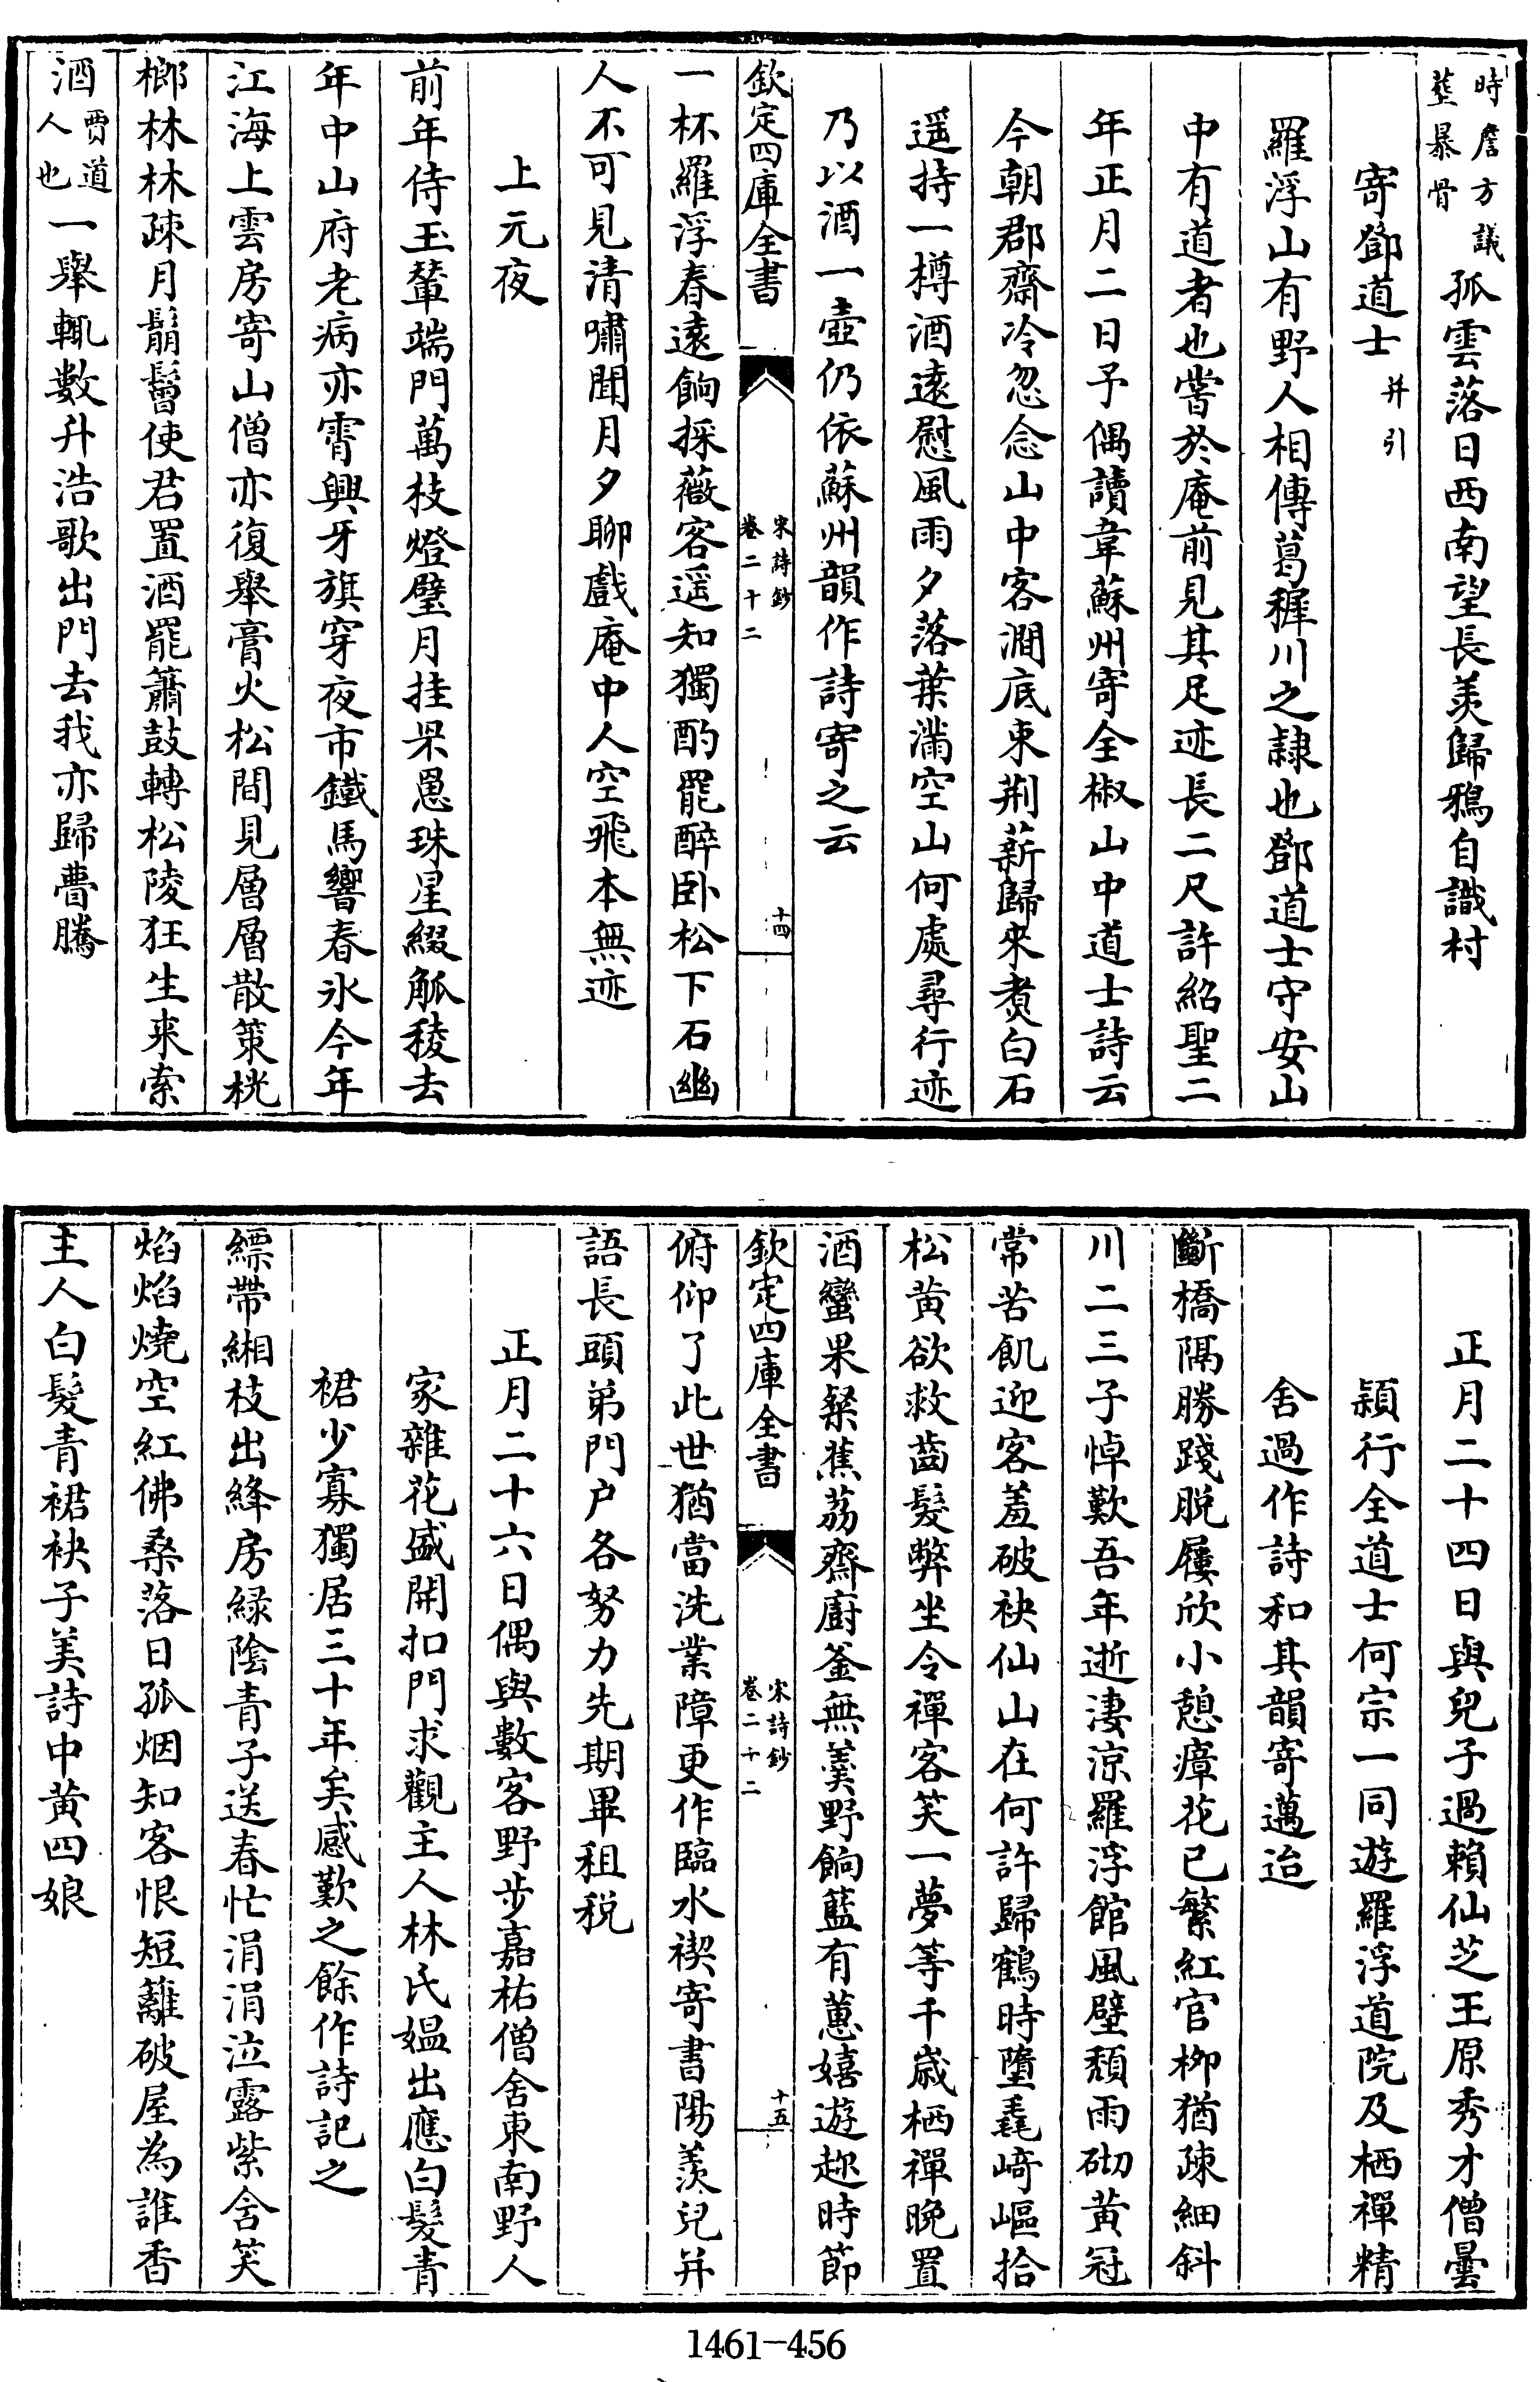 時詹方議塟暴骨孤雲落日西南望長羨歸鴉自識村
寄鄧道士并引
羅浮山有野人相傳葛稺川之隷也鄧道士守安山
中有道者也嘗於庵前見其足迹長二尺許紹聖二
年正月二日予偶讀韋蘇州寄全椒山中道士詩云
今朝郡齋冷忽念山中客澗底束荆薪歸來煑白石
遥持一樽酒遠慰風雨夕落葉滿空山何處尋行迹
乃以酒一壺仍依蘇州韻作詩寄之云
欽定四庫全書
宋詩鈔
卷二十二
十四
一杯羅浮春遠餉採薇客遥知獨酌罷醉卧松下石幽
人不可見清嘯聞月夕聊戲庵中人空飛本無迹
上元夜
前年侍玉輦端門萬枝燈璧月挂罘罳珠星綴觚稜去
年中山府老病亦宵興牙旗穿夜市鐵馬響春氷今年
江海上雲房寄山僧亦復舉膏火松間見層層散策桄
榔林林疎月鬅鬙使君置酒罷簫鼓轉松陵狂生来索
酒賈道人也一舉輒數升浩歌出門去我亦歸瞢騰
正月二十四日與兒子過賴仙芝王原秀才僧曇
頴行全道士何宗一同遊羅浮道院及栖禪精
舍過作詩和其韻寄邁迨
斷橋隔勝踐脱屨欣小憩瘴花已繁紅官栁猶疎細斜
川二三子悼歎吾年逝淒涼羅浮館風壁頹雨砌黄冠
常苦飢迎客羞破袂仙山在何許歸鶴時墮毳崎嶇拾
松黄欲救齒髮弊坐令禪客笑一夢等千歲栖禪晩置
酒蠻果粲蕉荔齋廚釡無羮野餉籃有蕙嬉遊趂時節
欽定四庫全書
宋詩鈔
卷二十二
十五
俯仰了此世猶當洗業障更作臨水禊寄書陽羨兒并
語長頭弟門户各努力先期畢租税
正月二十六日偶與數客野步嘉祐僧舍東南野人
家雜花盛開扣門求觀主人林氏媼出應白髮青
裙少寡獨居三十年矣感歎之餘作詩記之
縹帶緗枝出絳房緑陰青子送春忙涓涓泣露紫含笑
焰焰燒空紅佛桑落日孤烟知客恨短籬破屋為誰香
主人白髮青裙袂子美詩中黄四娘
1461-456